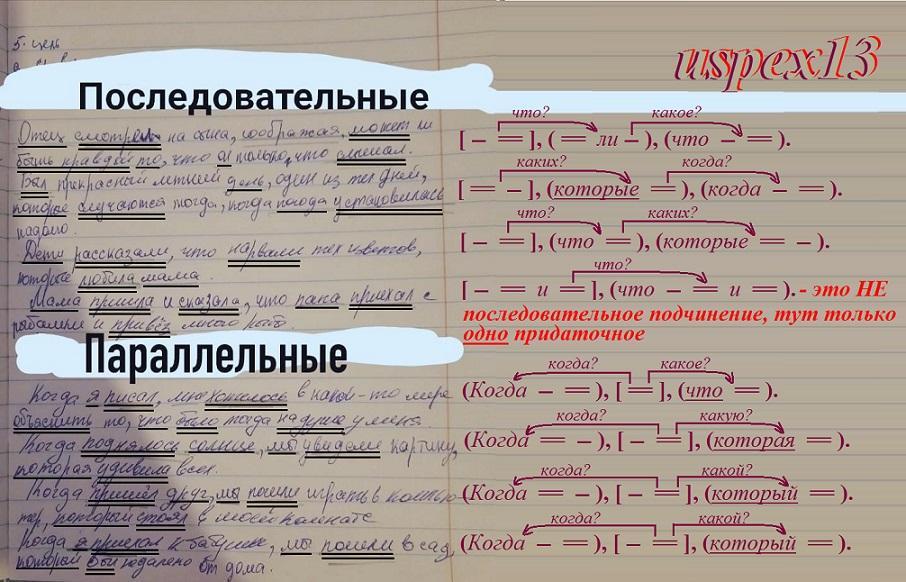 5. цель
uspex13
Последовательные
Отец смотрел на сына, соображая, может ли
быть правдой то, что он только, что слышал.
Был прекрасный летний день, один из тех дней,
которые случаются тогда, когда погода установилась
надолго.
Дети рассказали, что нарвали тех цветов,
которые любила мама.
Мама пришла и сказала, что папа приехал с
рыбалки и привёз много рыбы.
что? какое?
[ – = ], ( = ли – ), (что – = ).
каких? когда?
[ = – ], (которые = ), (когда – = ).
что? каких?
[ – = ], (что = ), (которые = – ).
что?
[ – = и = ], (что – = и = ). - это НЕ
последовательное подчинение, тут только
одно придаточное
Параллельные
Когда я писал, мне хотелось в какой-то мере
объяснить то, что было тогда на душе у меня.
Когда поднялось солнце, мы увидели картину,
которая удивила всех.
Когда пришёл друг, мы пошли играть в компью-
тер, который стоял в моей комнате
Когда я приехал к бабушке, мы пошли в сад,
который был недалеко от дома.
когда? какое?
(Когда – = ), [ = ], (что = ).
когда? какую?
(Когда = – ), [ – = ], (которая = ).
когда? какой?
(Когда = – ), [ – = ], (который = ).
когда? какой?
(Когда – = ), [ – = ], (который = ).